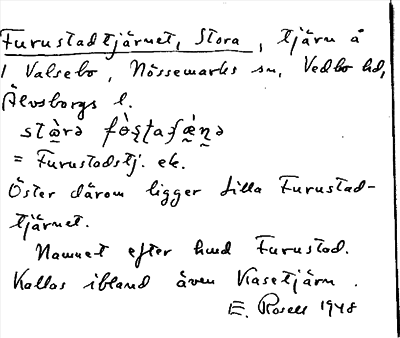 Furustadtjärnet, Stora, tjärn å
1 Valsebo, Nössemarks sn, Vedbo hd,
Älvsborgs l.
= Furustadstj. ek.
Öster därom ligger Lilla Furustad-
tjärnet.
Namnet efter hmd Furustad.
Kallas ibland även Kasetjärn.
E. Rosell 1948